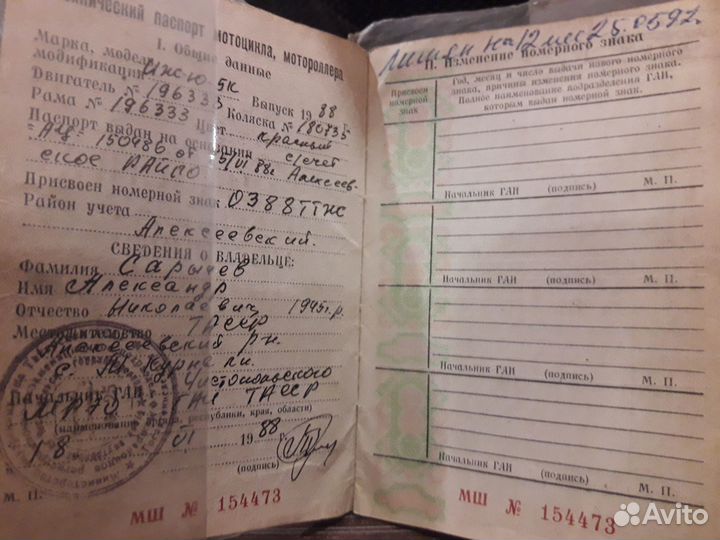 технический паспорт мотоцикла, мотороллера
I. Общие данные
Марка, модель,
модификация ИжЮ 5К
Двигатель № 196333 Выпуск 1988
Рама № 196333 Цвет красный Коляска № 180735
Паспорт выдан на основании с/счет
АЦ-150486 от 5/VI 88г Алексеев-
ское РАЙПО
Присвоен номерной знак 0388ТПЖ
Район учета
Алексеевский.
СВЕДЕНИЯ О ВЛАДЕЛЬЦЕ:
Фамилия Сарычев
Имя Александр
Отчество Николаевич 1945г.р.
Местожительство ТАССР
Алексеевский р-н.
Начальник ГАИ Чистопольского
МРЭО ГАИ ТАССР
республики, края, области)
18 VI 1988
(подпись)
М. П.
МШ № 154473
лишен на 12 мес 25.05.92.
II. изменение номерного знака
Присвоен номерной знак
Год, месяц и число выдачи нового номерного
знака, причины изменения номерного знака.
Полное наименование подразделения ГАИ,
которым выдан номерной знак.
Начальник ГАИ (подпись) М. П.
Начальник ГАИ (подпись) М. П.
Начальник ГАИ (подпись) М. П.
Начальник ГАИ (подпись) М. П.
Начальник ГАИ (подпись) М. П.
МШ № 154473
Avito